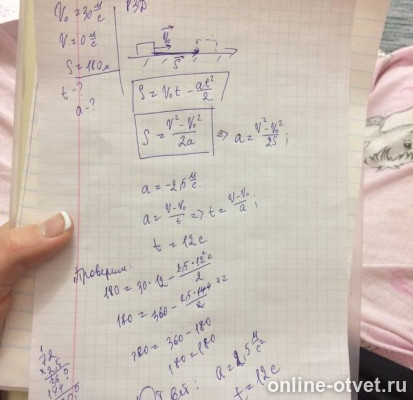 V₀ = 30 м/с
РЗД
V = 0 м/с
S = 180 м
t - ?
a - ?
V₀
S
S = V₀t - at²/2
S = (V² - V₀²)/2a => a = (V² - V₀²)/2S;
a = -2,5 м/с
a = (V - V₀)/t => t = (V - V₀)/a;
t = 12 с
Проверим:
180 = 30 · 12 - 2,5 · 12²/2
180 = 360 - 2,5 · 144/2
180 = 360 - 180
180 = 180
Ответ: a = 2,5 м/с²
t = 12 с
72
2,5
360
144
online-otvet.ru